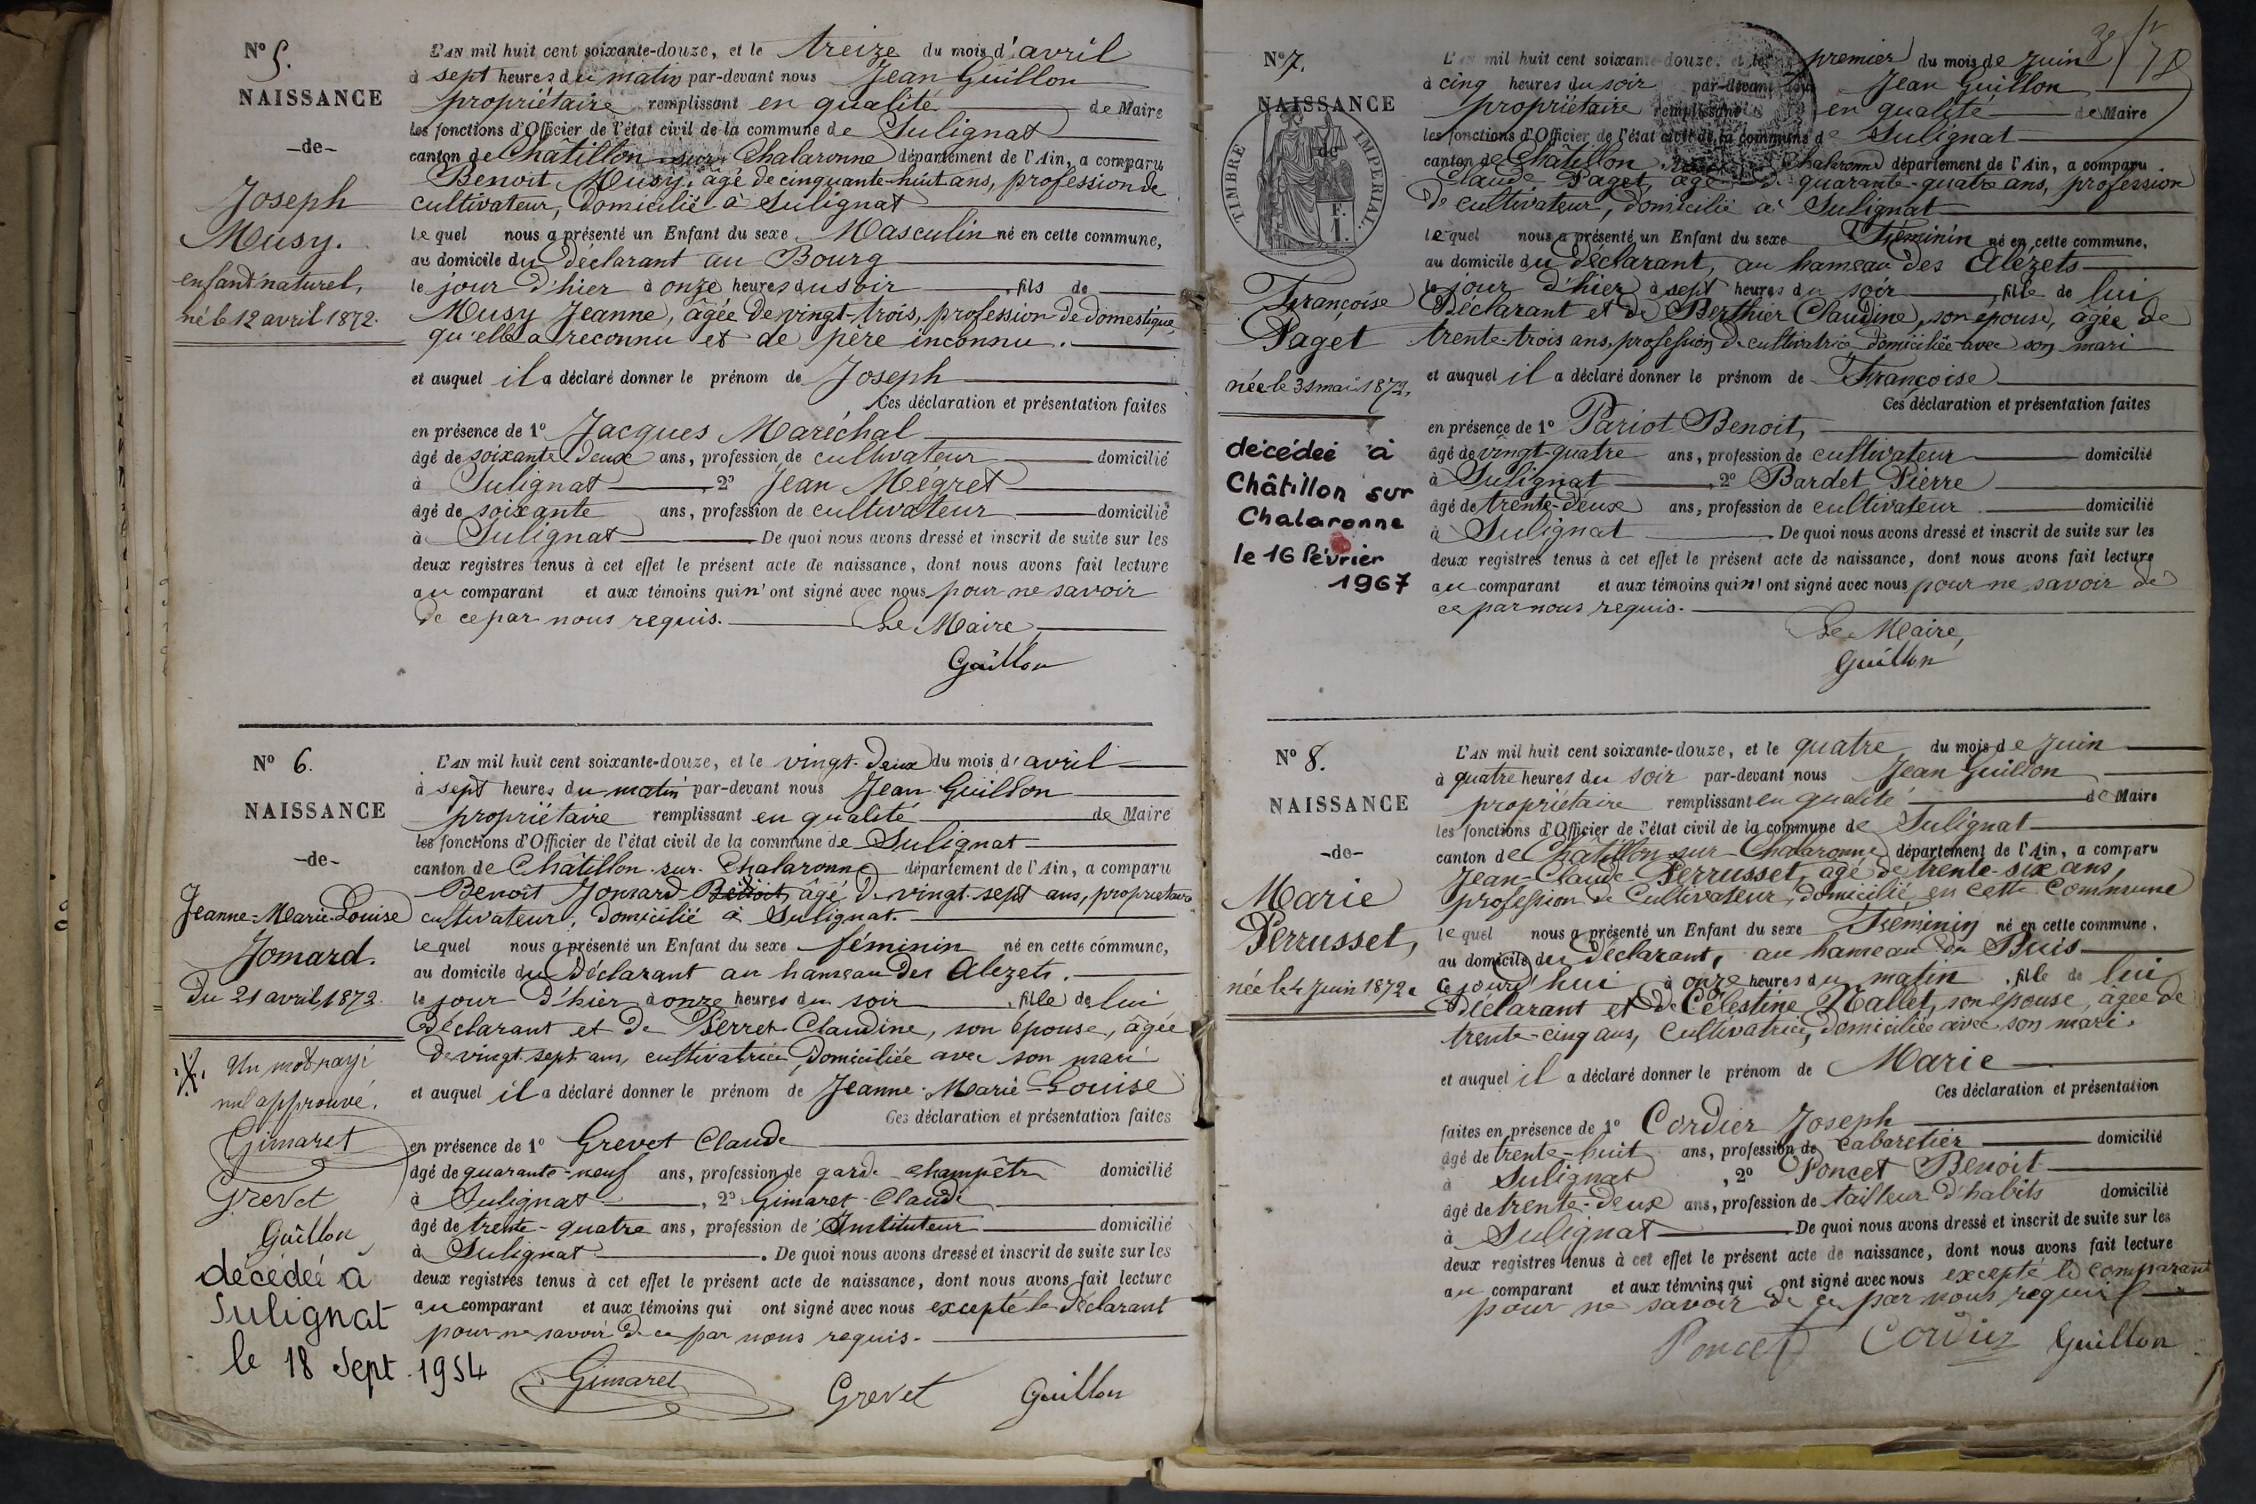 N° 5.
NAISSANCE
-de-
Joseph
Musy.
enfant naturel,
né le 12 avril 1872.
L'AN mil huit cent soixante-douze, et le treize du mois d'avril
à sept heures du matin par-devant nous Jean Guillon
propriétaire remplissant en qualité de Maire
les fonctions d'Officier de l'état civil de la commune de Sulignat
canton de Châtillon sur Chalaronne département de l'Ain, a comparu
Benoit Musy, âgé de cinquante-huit ans, profession de
cultivateur, domicilié à Sulignat
lequel nous a présenté un Enfant du sexe Masculin né en cette commune,
au domicile du déclarant au Bourg
le jour d'hier à onze heures du soir, fils de
Musy Jeanne, âgée de vingt-trois, profession de domestique
qu'elle a reconnu et de père inconnu.
et auquel il a déclaré donner le prénom de Joseph
Ces déclaration et présentation faites
en présence de 1° Jacques Maréchal
âgé de soixante deux ans, profession de cultivateur domicilié
à Sulignat, 2° Jean Mégret
âgé de soixante ans, profession de cultivateur domicilié
à Sulignat De quoi nous avons dressé et inscrit de suite sur les
deux registres tenus à cet effet le présent acte de naissance, dont nous avons fait lecture
au comparant et aux témoins qui n'ont signé avec nous pour ne savoir
de ce par nous requis. Le Maire
Guillon
N° 6.
NAISSANCE
-de-
Jeanne-Marie-Louise
Jomard.
du 21 avril 1872.
Un mot rayé
nul approuvé.
Gimaret
Grevet
Guillon
décédée à
Sulignat
le 18 sept. 1954
L'AN mil huit cent soixante-douze, et le vingt-deux du mois d'avril
à sept heures du matin par-devant nous Jean Guillon
propriétaire remplissant en qualité de Maire
les fonctions d'Officier de l'état civil de la commune de Sulignat
canton de Châtillon-sur-Chalaronne département de l'Ain, a comparu
Benoît Jomard Benoit, âgé de vingt-sept ans, propriétaire
cultivateur, domicilié à Sulignat
lequel nous a présenté un Enfant du sexe féminin né en cette commune,
au domicile du déclarant au hameau des Alezets.
le jour d'hier à onze heures du soir, fille de lui
déclarant et de Perret Claudine, son épouse, âgée
de vingt-sept ans, cultivatrice, domiciliée avec son mari
et auquel il a déclaré donner le prénom de Jeanne-Marie-Louise
Ces déclaration et présentation faites
en présence de 1° Grevet Claude
âgé de quarante-neuf ans, profession de garde champêtre domicilié
à Sulignat, 2° Gimaret Claude
âgé de trente-quatre ans, profession de Instituteur domicilié
à Sulignat. De quoi nous avons dressé et inscrit de suite sur les
deux registres tenus à cet effet le présent acte de naissance, dont nous avons fait lecture
au comparant et aux témoins qui ont signé avec nous excepté le déclarant
pour ne savoir de ce par nous requis.
Gimaret Grevet Guillon
N° 7.
NAISSANCE
de
TIMBRE IMPERIAL.
F.
1.
Françoise
Paget
née le 31 mai 1872.
décédée à
Châtillon sur
Chalaronne
le 16 février
1967
L'AN mil huit cent soixante-douze, et le premier du mois de Juin
à cinq heures du soir par-devant nous Jean Guillon
propriétaire remplissant en qualité de Maire
les fonctions d'Officier de l'état civil de la commune de Sulignat
canton de Châtillon sur Chalaronne département de l'Ain, a comparu
Claude Paget, âgé de quarante-quatre ans, profession
de cultivateur, domicilié à Sulignat
lequel nous a présenté un Enfant du sexe Féminin né en cette commune,
au domicile du déclarant, au hameau des Alezets
le jour d'hier à sept heures du soir, fille de lui
déclarant et de Berthier Claudine, son épouse, âgée de
trente-trois ans, profession de cultivatrice domiciliée avec son mari
et auquel il a déclaré donner le prénom de Françoise
Ces déclaration et présentation faites
en présence de 1° Pariot Benoit,
âgé de vingt-quatre ans, profession de cultivateur domicilié
à Sulignat, 2° Bardet Pierre
âgé de trente-deux ans, profession de cultivateur domicilié
à Sulignat. De quoi nous avons dressé et inscrit de suite sur les
deux registres tenus à cet effet le présent acte de naissance, dont nous avons fait lecture
au comparant et aux témoins qui n'ont signé avec nous pour ne savoir de
ce par nous requis.
Le Maire,
Guillon
N° 8.
NAISSANCE
-de-
Marie
Perrusset,
née le 4 Juin 1872.
L'AN mil huit cent soixante-douze, et le quatre du mois de Juin
à quatre heures du soir par-devant nous Jean Guillon
propriétaire remplissant en qualité de Maire
les fonctions d'Officier de l'état civil de la commune de Sulignat
canton de Châtillon-sur-Chalaronne département de l'Ain, a comparu
Jean-Claude Perrusset, âgé de trente-six ans,
profession de Cultivateur, domicilié en cette commune
lequel nous a présenté un Enfant du sexe Féminin né en cette commune,
au domicile du déclarant, au hameau du Buis
Ce jourd'hui à onze heures du matin, fille de lui
déclarant et de Célestine Mallet, son épouse, âgée de
trente-cinq ans, cultivatrice, domiciliée avec son mari.
et auquel il a déclaré donner le prénom de Marie
Ces déclaration et présentation
faites en présence de 1° Cordier Joseph
âgé de trente-huit ans, profession de cabaretier domicilié
à Sulignat, 2° Poncet Benoit
âgé de trente-deux ans, profession de tailleur d'habits domicilié
à Sulignat De quoi nous avons dressé et inscrit de suite sur les
deux registres tenus à cet effet le présent acte de naissance, dont nous avons fait lecture
au comparant et aux témoins qui ont signé avec nous excepté le comparant
pour ne savoir de ce par nous requis
Poncet Cordier Guillon